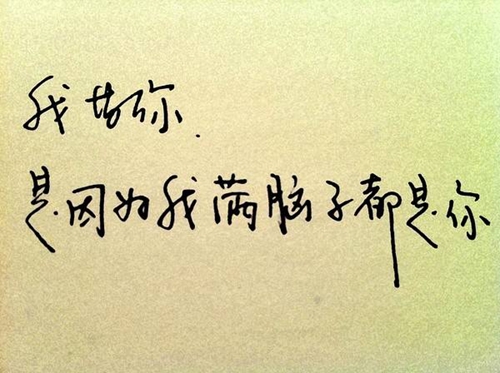 我带你.
是因为我满脑子都是你